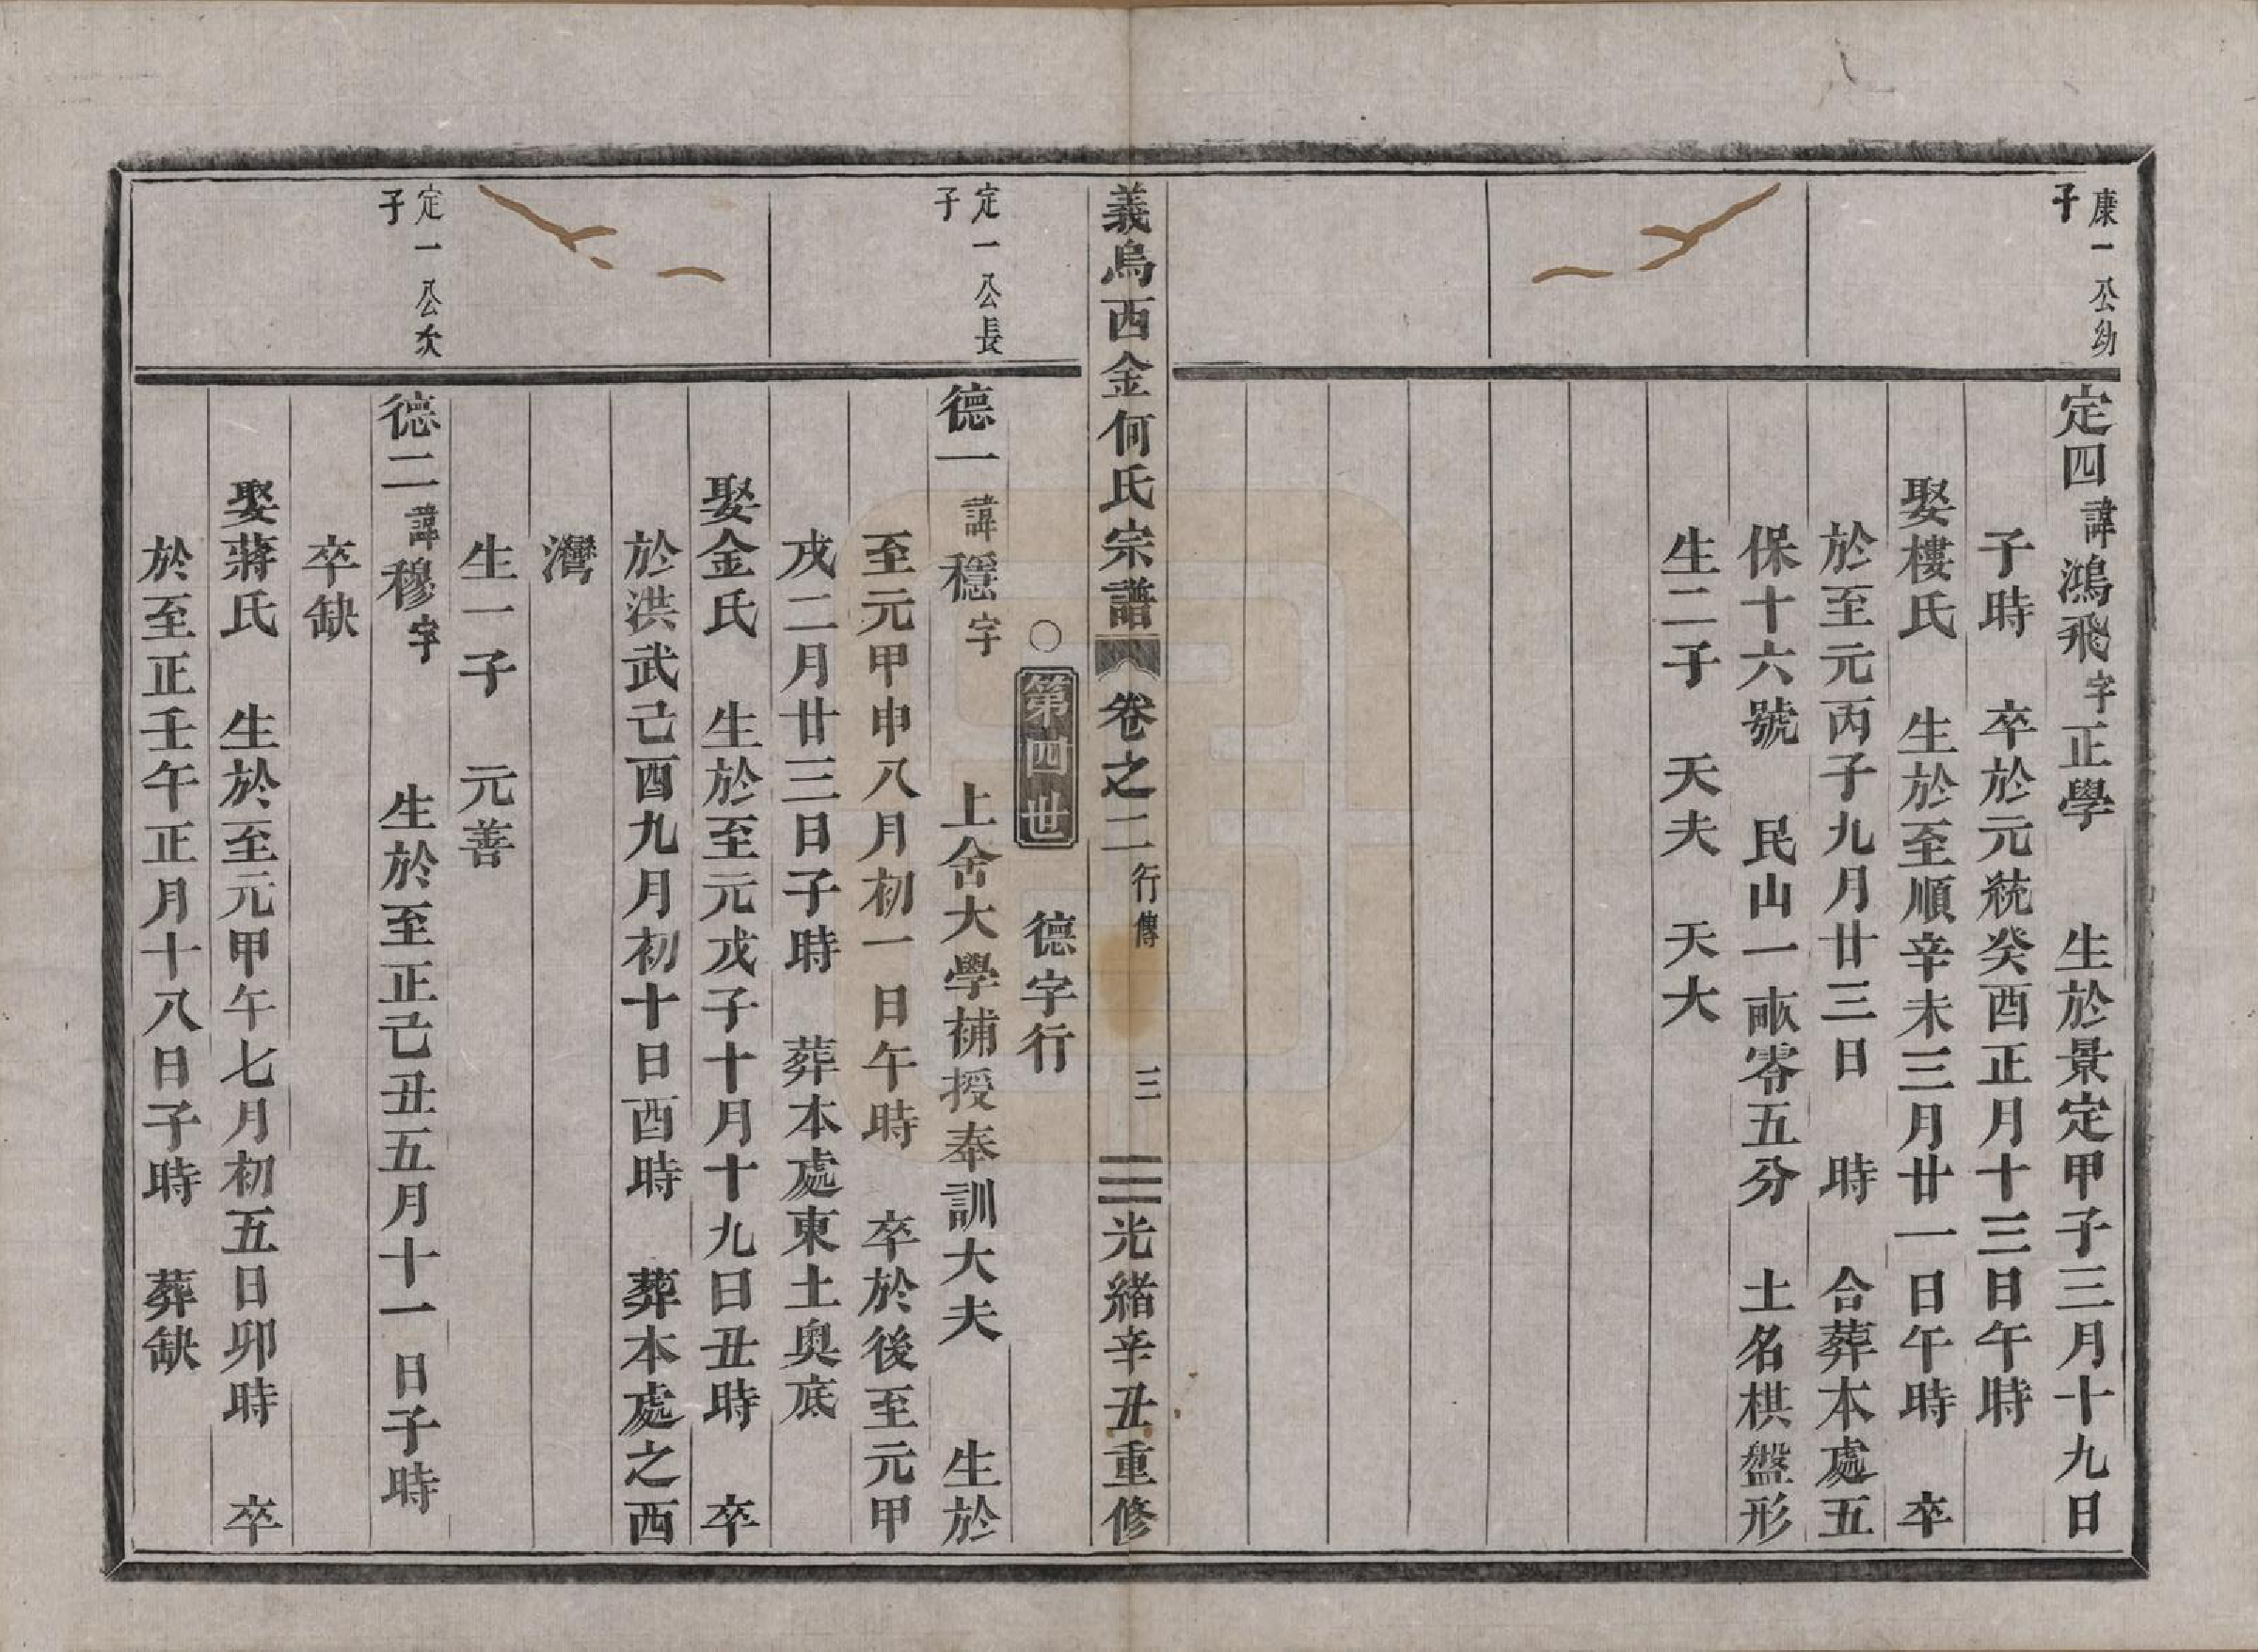 康一公幼
子
定四諱鴻飛字正學 生於景定甲子三月十九日
子時 卒於元統癸酉正月十三日午時
娶樓氏 生於至順辛未三月廿一日午時 卒
於至元丙子九月廿三日 時 合葬本處五
保十六號 民山一畝零五分 土名棋盤形
生二子 天夫 天大
義烏西金何氏宗譜 卷之二 行傳 三 光緒辛丑重修
○第四世 德字行
定一公長
子
德一 諱穩字 上舍大學補授奉訓大夫 生於
至元甲申八月初一日午時 卒於後至元甲
戌二月廿三日子時 葬本處東土奧底
娶金氏 生於至元戊子十月十九日丑時 卒
於洪武己酉九月初十日酉時 葬本處之西
灣
生一子 元善
定一公次
子
德二 諱穆字 生於至正己丑五月十一日子時
卒缺
娶蔣氏 生於至元甲午七月初五日卯時 卒
於至正壬午正月十八日子時 葬缺